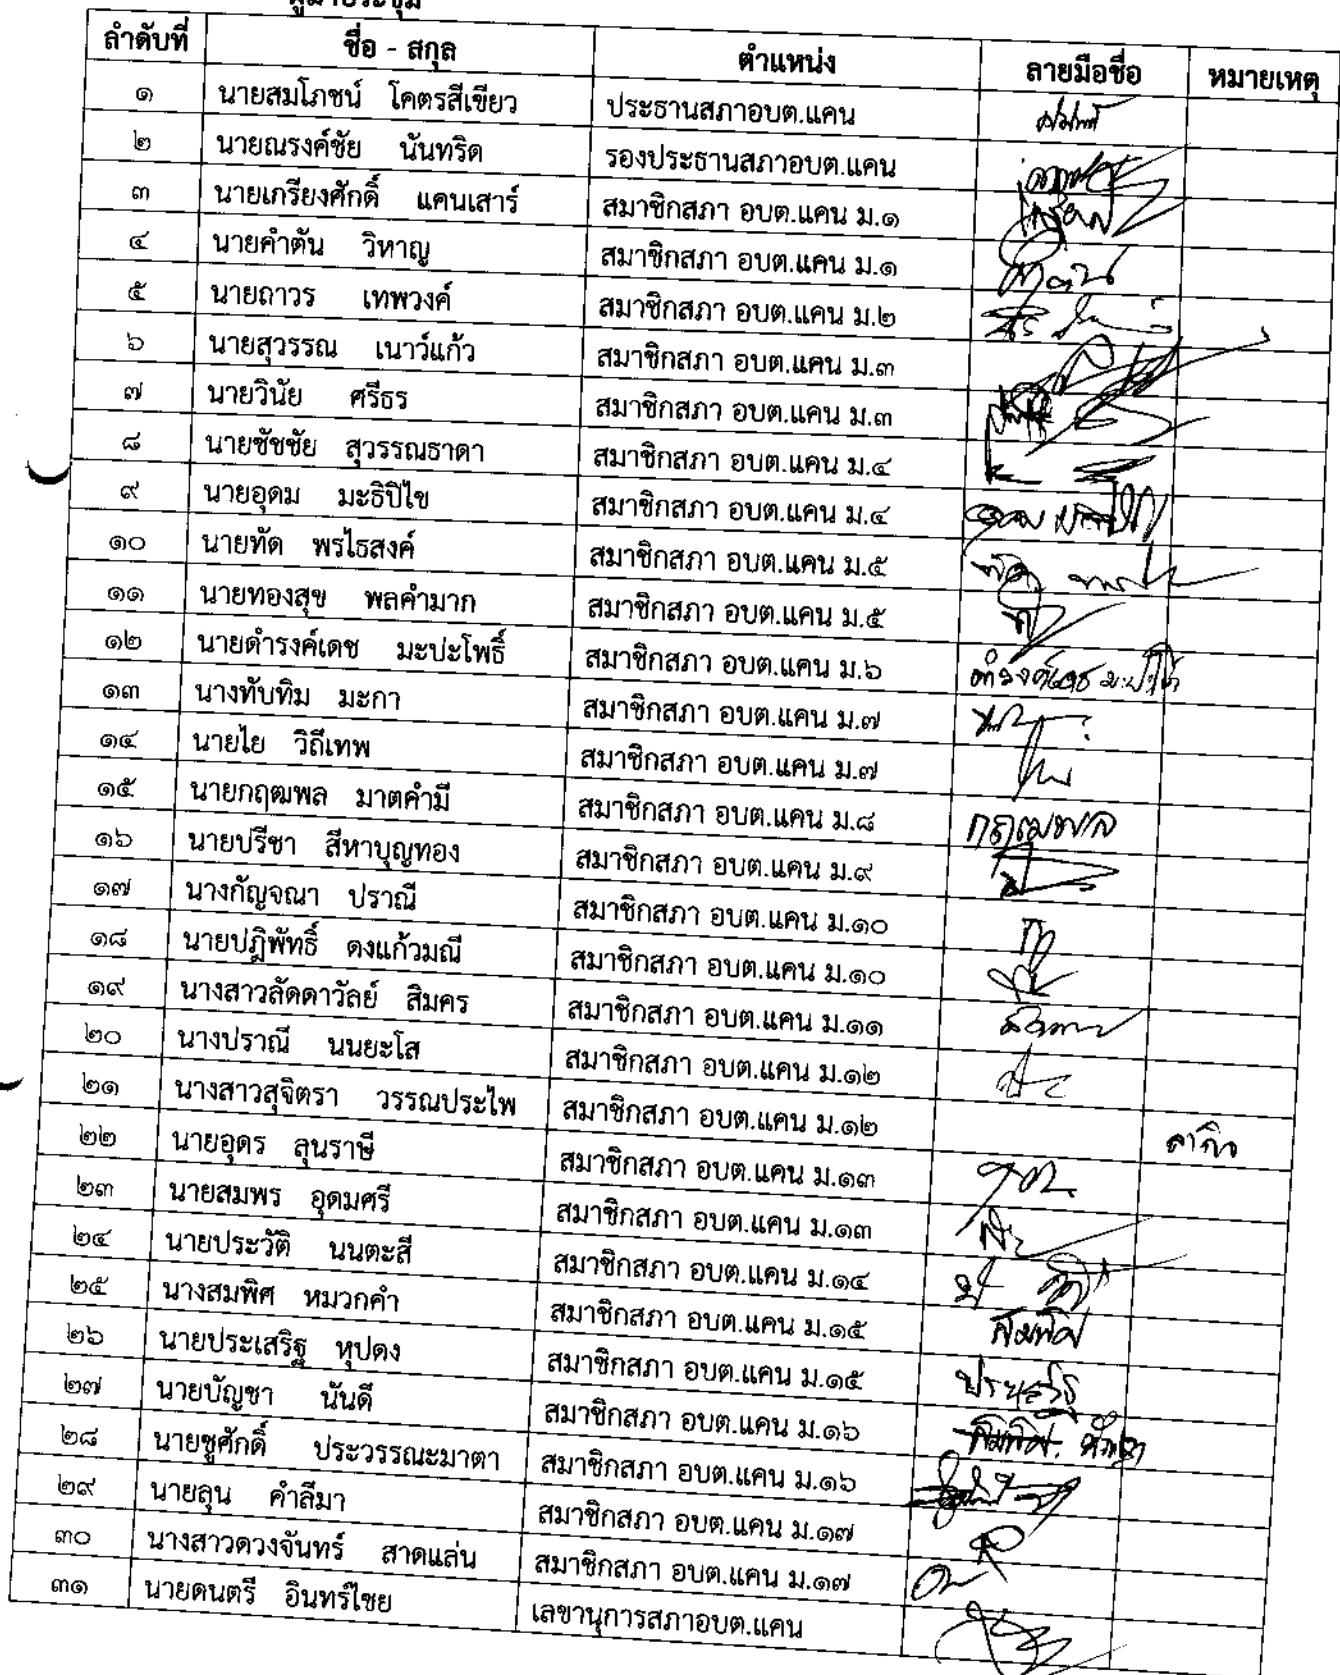 ผู้มาประชุม
ลำดับที่ ชื่อ - สกุล ตำแหน่ง ลายมือชื่อ หมายเหตุ
๑ นายสมโภชน์ โคตรสีเขียว ประธานสภาอบต.แคน
๒ นายณรงค์ชัย นันทริด รองประธานสภาอบต.แคน
๓ นายเกรียงศักดิ์ แคนเสาร์ สมาชิกสภา อบต.แคน ม.๑
๔ นายคำตัน วิหาญ สมาชิกสภา อบต.แคน ม.๑
๕ นายถาวร เทพวงค์ สมาชิกสภา อบต.แคน ม.๒
๖ นายสุวรรณ เนาว์แก้ว สมาชิกสภา อบต.แคน ม.๓
๗ นายวินัย ศรีธร สมาชิกสภา อบต.แคน ม.๓
๘ นายชัชชัย สุวรรณธาดา สมาชิกสภา อบต.แคน ม.๔
๙ นายอุดม มะธิปิไข สมาชิกสภา อบต.แคน ม.๔
๑๐ นายทัด พรไธสงค์ สมาชิกสภา อบต.แคน ม.๕
๑๑ นายทองสุข พลคำมาก สมาชิกสภา อบต.แคน ม.๕
๑๒ นายดำรงค์เดช มะปะโพธิ์ สมาชิกสภา อบต.แคน ม.๖
๑๓ นางทับทิม มะกา สมาชิกสภา อบต.แคน ม.๗
๑๔ นายไย วิถีเทพ สมาชิกสภา อบต.แคน ม.๗
๑๕ นายกฤฒพล มาตคำมี สมาชิกสภา อบต.แคน ม.๘ กฤฒพล
๑๖ นายปรีชา สีหาบุญทอง สมาชิกสภา อบต.แคน ม.๙
๑๗ นางกัญจณา ปราณี สมาชิกสภา อบต.แคน ม.๑๐
๑๘ นายปฎิพัทธิ์ ดงแก้วมณี สมาชิกสภา อบต.แคน ม.๑๐
๑๙ นางสาวลัดดาวัลย์ สิมคร สมาชิกสภา อบต.แคน ม.๑๑
๒๐ นางปราณี นนยะโส สมาชิกสภา อบต.แคน ม.๑๒
๒๑ นางสาวสุจิตรา วรรณประไพ สมาชิกสภา อบต.แคน ม.๑๒ ลากิจ
๒๒ นายอุดร ลุนราษี สมาชิกสภา อบต.แคน ม.๑๓
๒๓ นายสมพร อุดมศรี สมาชิกสภา อบต.แคน ม.๑๓
๒๔ นายประวัติ นนตะสี สมาชิกสภา อบต.แคน ม.๑๔
๒๕ นางสมพิศ หมวกคำ สมาชิกสภา อบต.แคน ม.๑๕ สมพิศ
๒๖ นายประเสริฐ หุปดง สมาชิกสภา อบต.แคน ม.๑๕ ประเสริฐ
๒๗ นายบัญชา นันดี สมาชิกสภา อบต.แคน ม.๑๖
๒๘ นายชูศักดิ์ ประวรรณะมาตา สมาชิกสภา อบต.แคน ม.๑๖
๒๙ นายลุน คำลีมา สมาชิกสภา อบต.แคน ม.๑๗
๓๐ นางสาวดวงจันทร์ สาดแล่น สมาชิกสภา อบต.แคน ม.๑๗
๓๑ นายดนตรี อินทร์ไชย เลขานุการสภาอบต.แคน